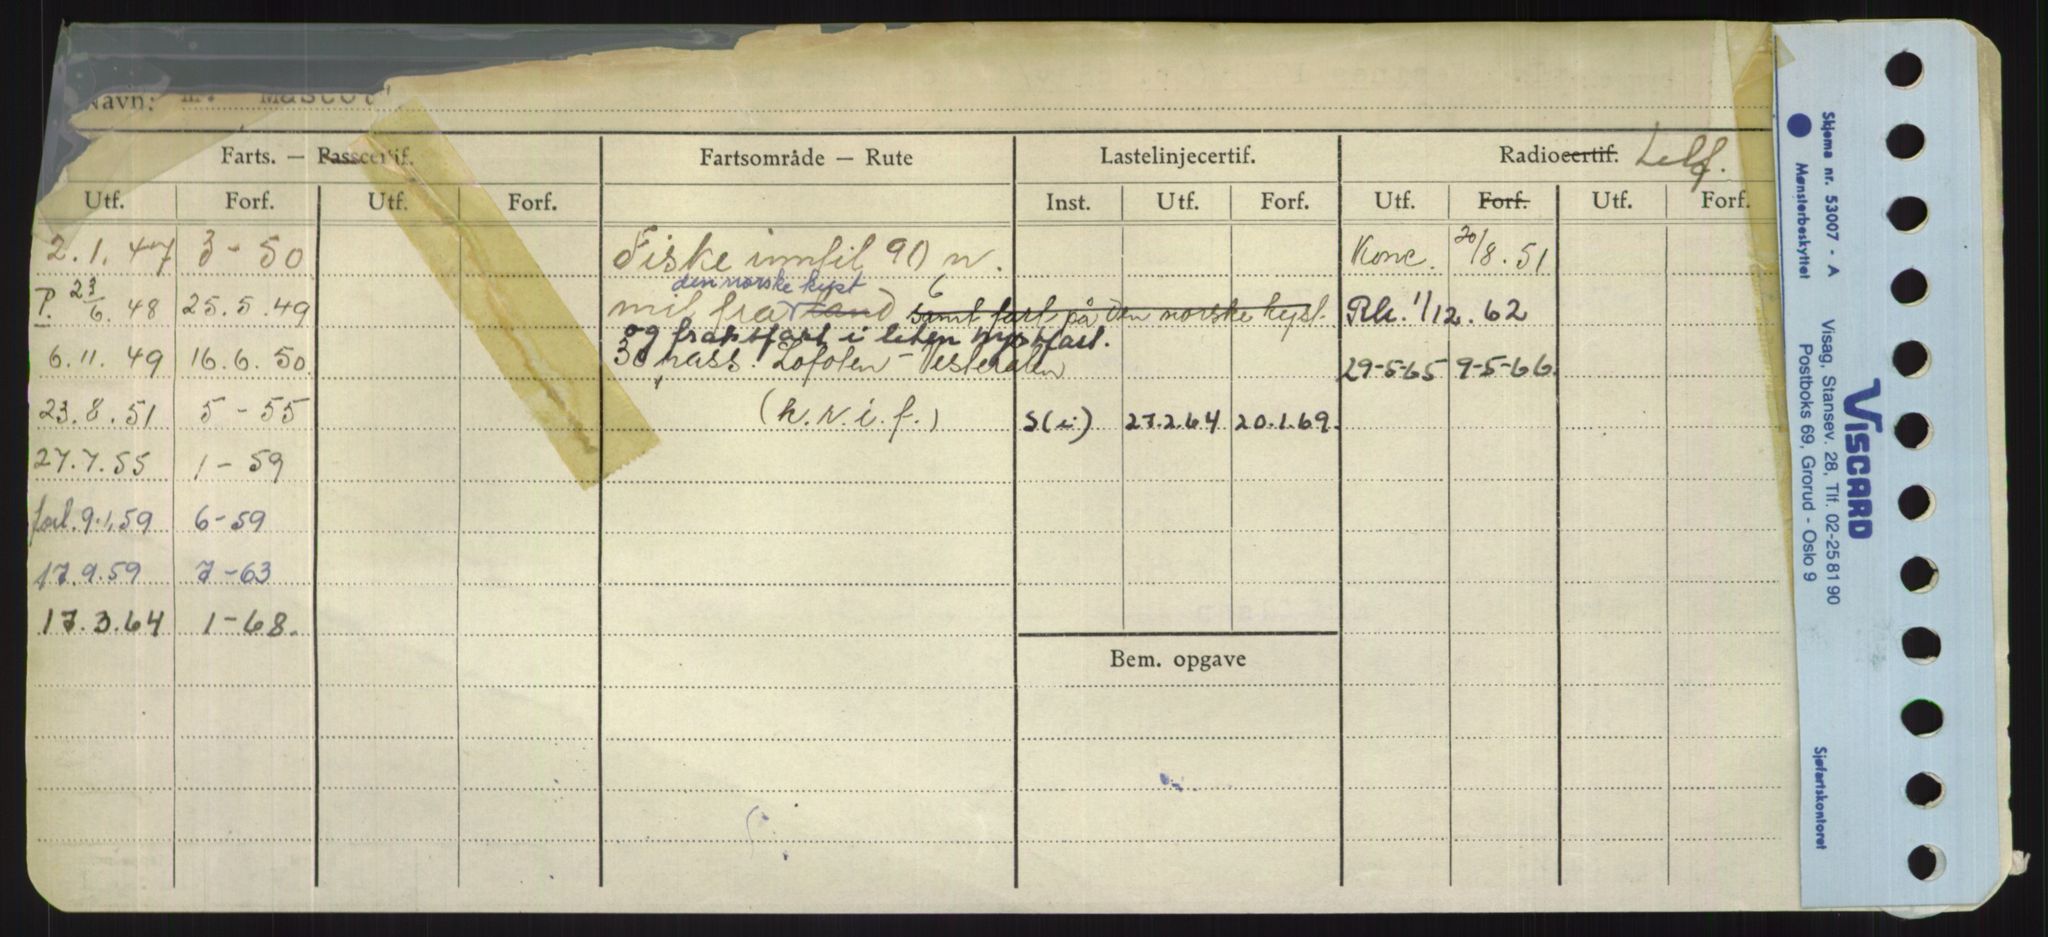 Navn: m. "Mascot"
Farts. — Passcertif.
Fartsområde — Rute
Lastelinjecertif.
Radiocertif. telf.
Utf. Forf. Utf. Forf. Inst. Utf. Forf. Utf. Forf. Utf. Forf.
2.1.47 3-50 Fiske inntil 90 n. Konc. 20/8.51
den norske kyst
P. 23/6.48 25.5.49 mil fra land samt fart på den norske kyst. Rk. 1/12.62
og fraktfart i liten kystfart.
6.11.49 16.6.50 30 pass. Lofoten - Vesterålen 29-5-65 9-5-66
23.8.51 5-55 (k.v.i.f.) S(i) 27.2.64 20.1.69
27.7.55 1-59
forl. 9.1.59 6-59
17.9.59 7-63
17.3.64 1-68.
Bem. opgave
Skjema nr. 53007 - A Visag, Stansev. 28, Tlf. 02-25 81 90
Mønsterbeskyttet Postboks 69, Grorud - Oslo 9
VISCARD
Sjøfartskontoret